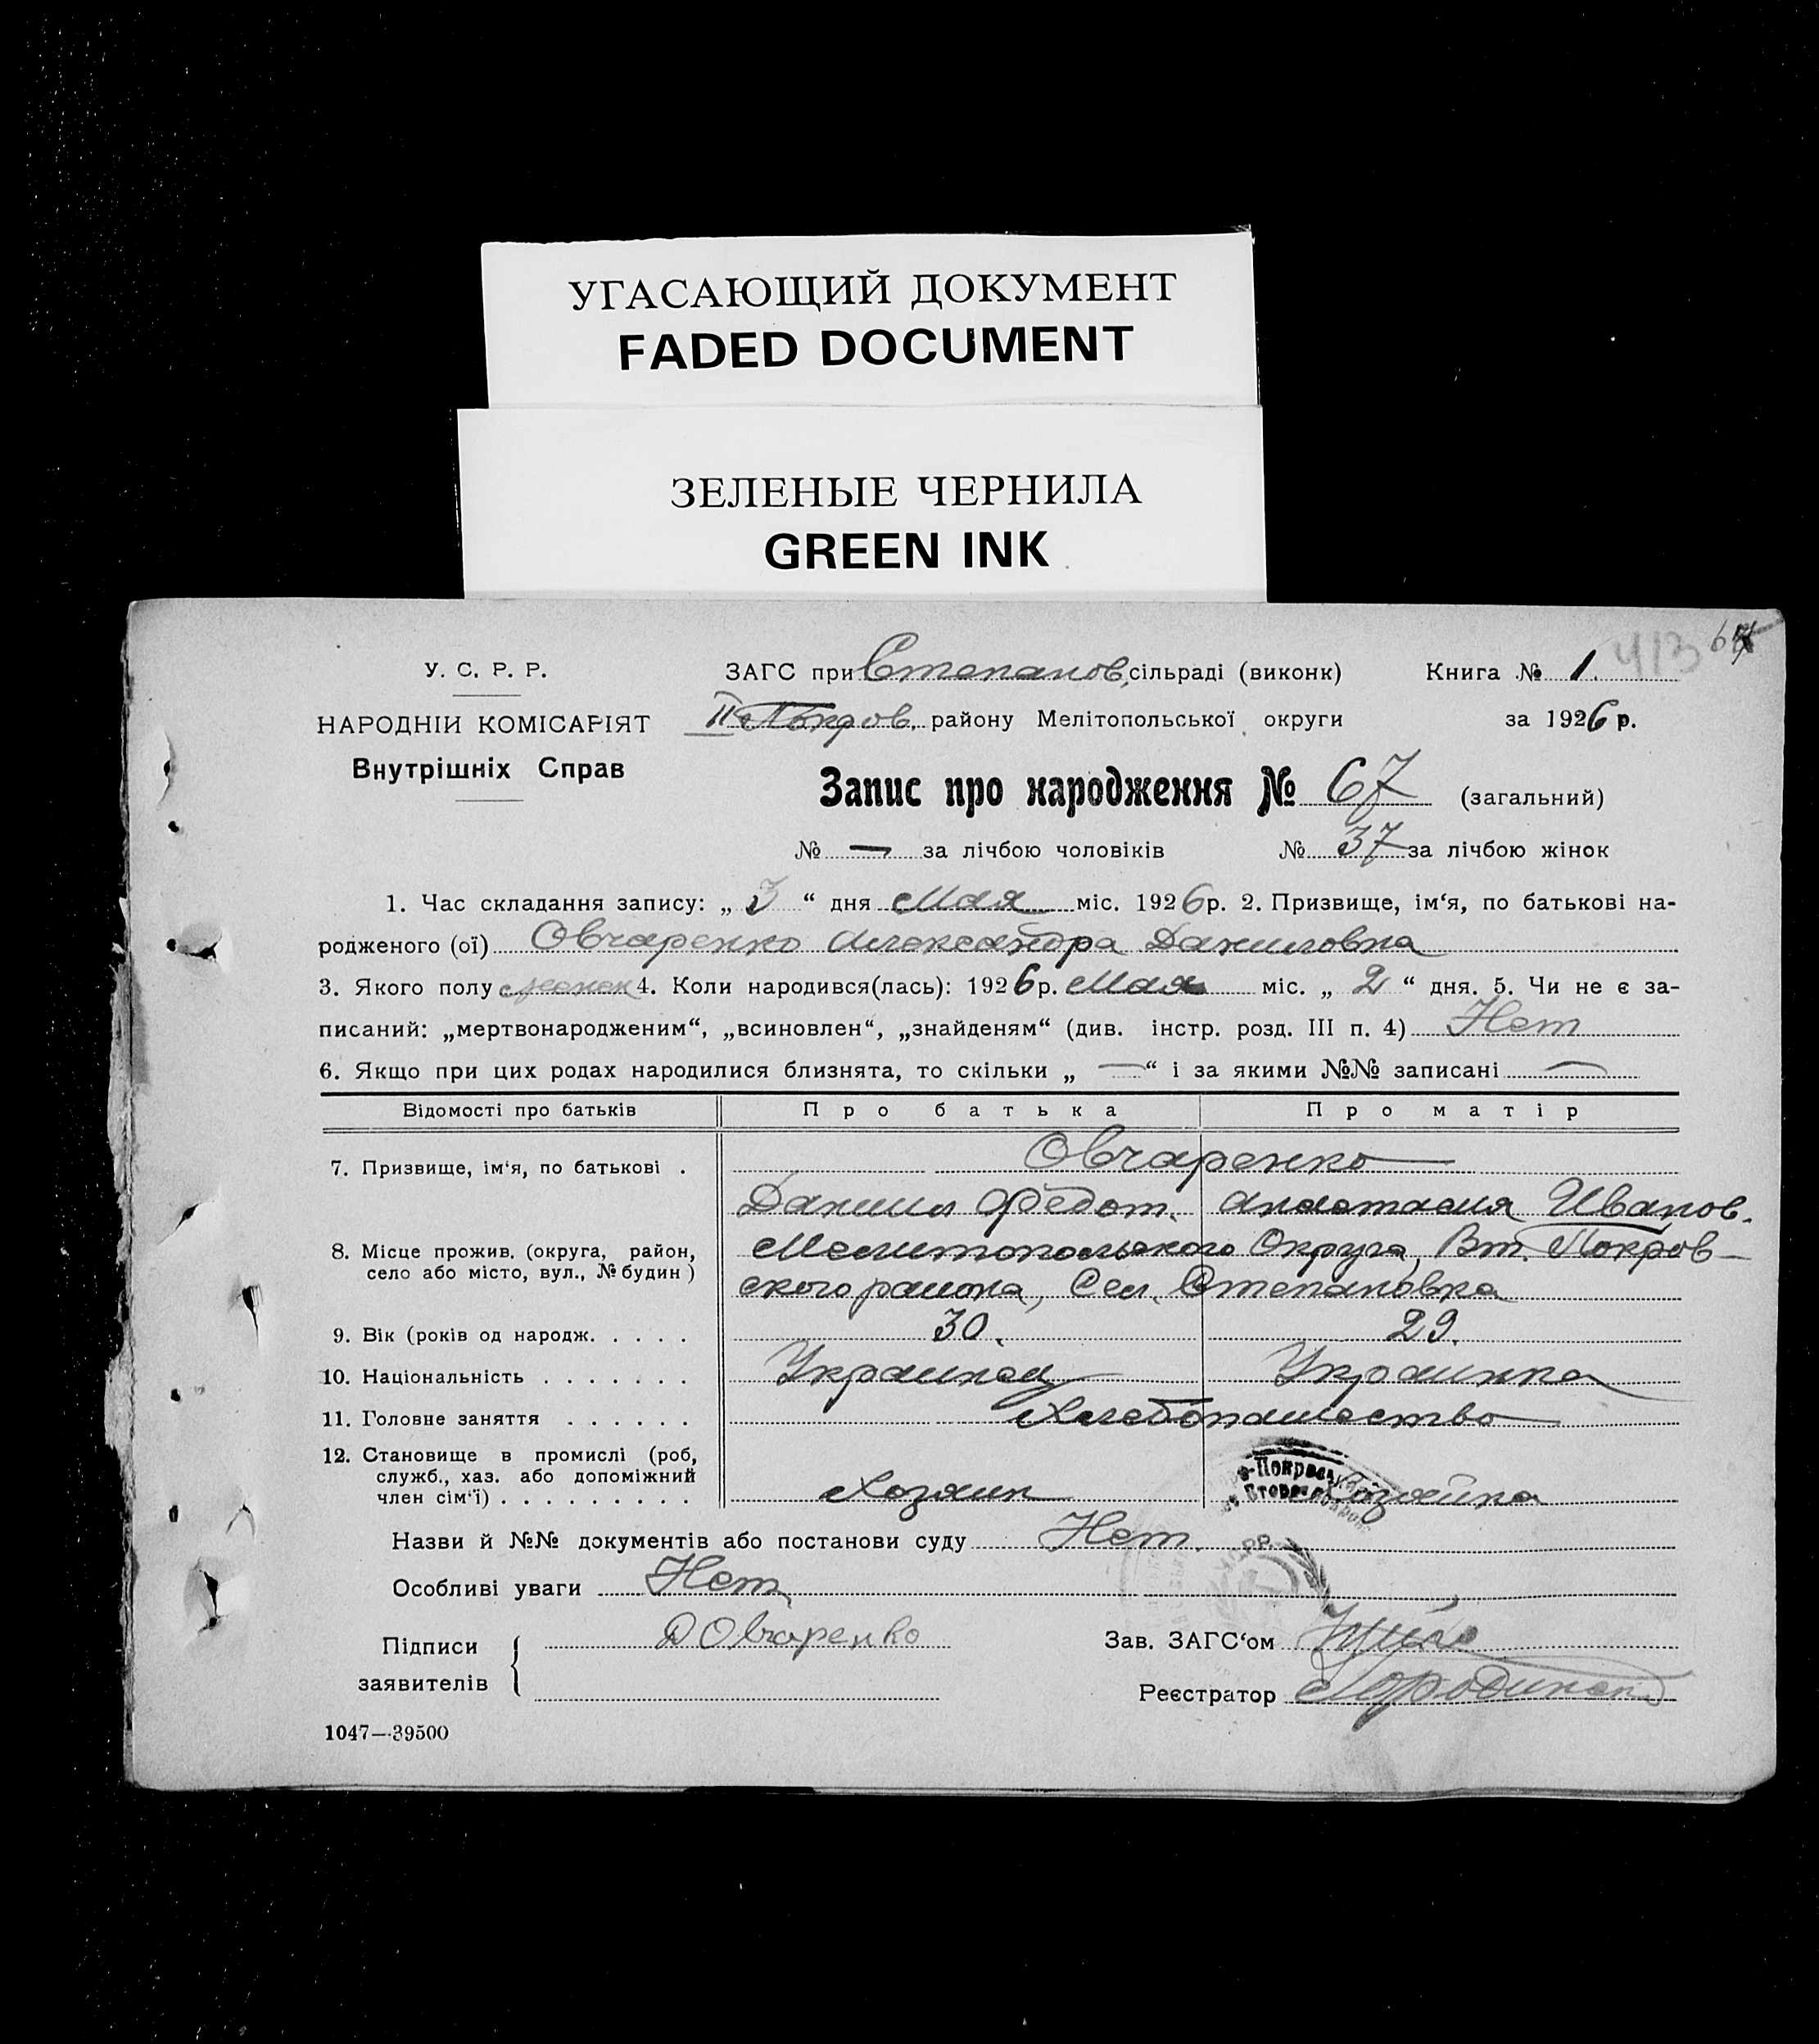 УГАСАЮЩИЙ ДОКУМЕНТ
FADED DOCUMENT
ЗЕЛЕНЫЕ ЧЕРНИЛА
GREEN INK
413 67
У. С. Р. Р. ЗАГС при Степанов. сільраді (виконк) Книга № 1.
НАРОДНІЙ КОМІСАРІЯТ II Покров. району Мелітопольської округи за 1926 р.
Внутрішніх Справ
Запис про народження № 67 (загальний)
№ — за лічбою чоловіків № 37 за лічбою жінок
1. Час складання запису: „ 3 “ дня Мая міс. 1926 р. 2. Призвище, ім‘я, по батькові на-
родженого (ої) Овчаренко Александра Даниловна
3. Якого полу женск 4. Коли народився(лась): 1926 р. Мая міс. „ 2 “ дня. 5. Чи не є за-
писаний: „мертвонародженим“, „всиновлен“, „знайденям“ (див. інстр. розд. III п. 4) Нет
6. Якщо при цих родах народилися близнята, то скільки „ — “ і за якими №№ записані —
Відомості про батьків Про батька Про матір
7. Призвище, ім‘я, по батькові . Овчаренко
Данил Федот. Анастасия Иванов.
8. Місце прожив. (округа, район, Мелитопольского Округа, Вт. Покров-
село або місто, вул., № будин ) ского раиона, Сел. Степановка
9. Вік (років од народж. . . . . 30. 29.
10. Національність . . . . . . . Украинец Украинка
11. Головне заняття . . . . . . Хлебопашество
12. Становище в промислі (роб,
служб., хаз. або допоміжний
член сім‘ї) . . . . . . . . . Хозяин Хозяйка
Назви й №№ документів або постанови суду Нет.
Особливі уваги Нет
Підписи Д Овчаренко Зав. ЗАГС‘ом
заявителів Реєстратор
1047—39500